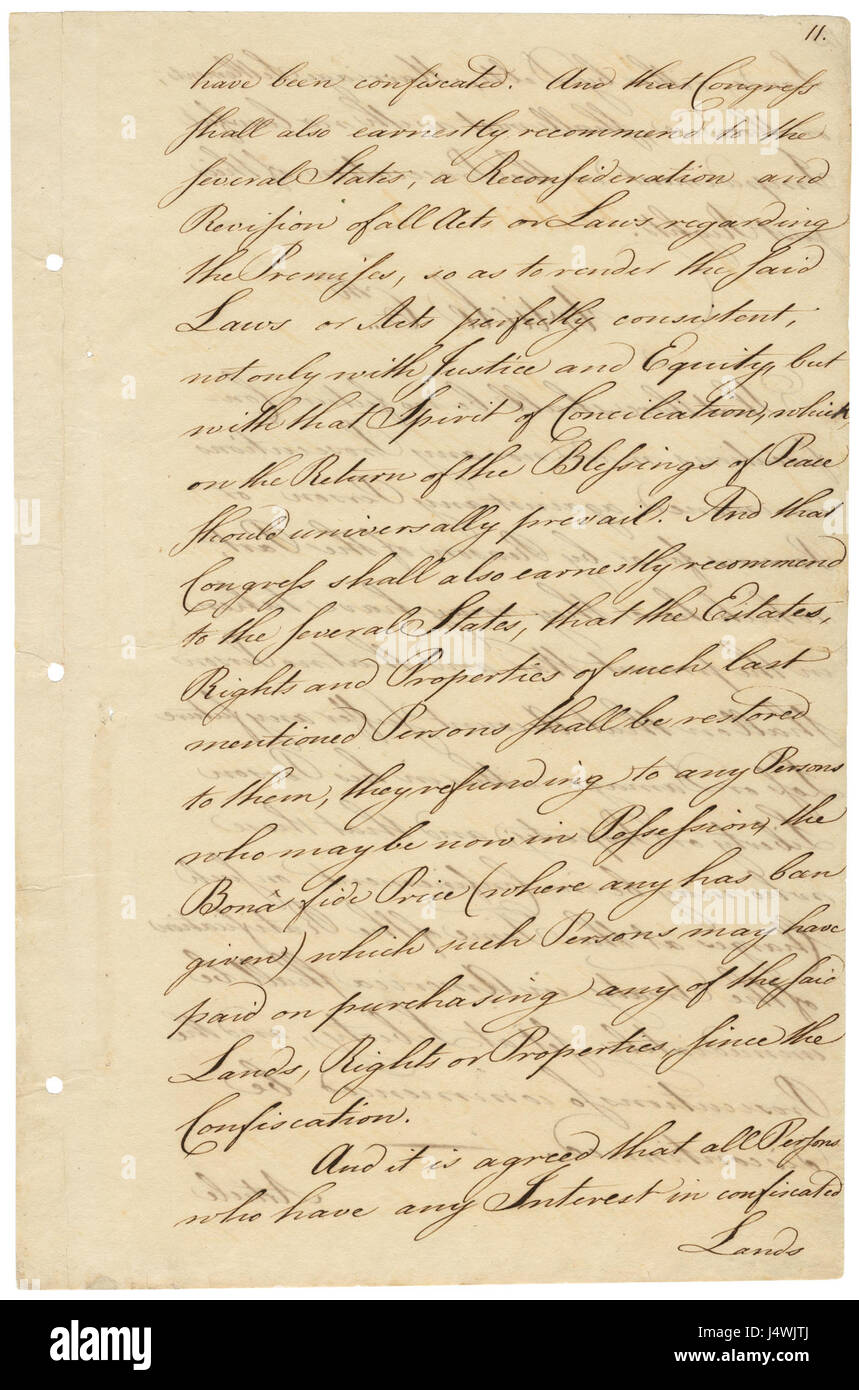 11.
have been confiscated. And that Congress
shall also earnestly recommend to the
several States, a Reconsideration and
Revision of all Acts or Laws regarding
the Premises, so as to render the said
Laws or Acts perfectly consistent,
not only with Justice and Equity, but
with that Spirit of Conciliation, which
on the Return of the Blessings of Peace
should universally prevail. And that
Congress shall also earnestly recommend
to the several States, that the Estates,
Rights and Properties of such last
mentioned Persons shall be restored
to them, they refunding to any Persons
who may be now in Possession, the
Bonâ fide Price (where any has been
given) which such Persons may have
paid on purchasing any of the said
Lands, Rights or Properties, since the
Confiscation.
And it is agreed that all Persons
who have any Interest in confiscated
Lands
alamy
a
alamy stock photo
Image ID: J4WJTJ
www.alamy.com